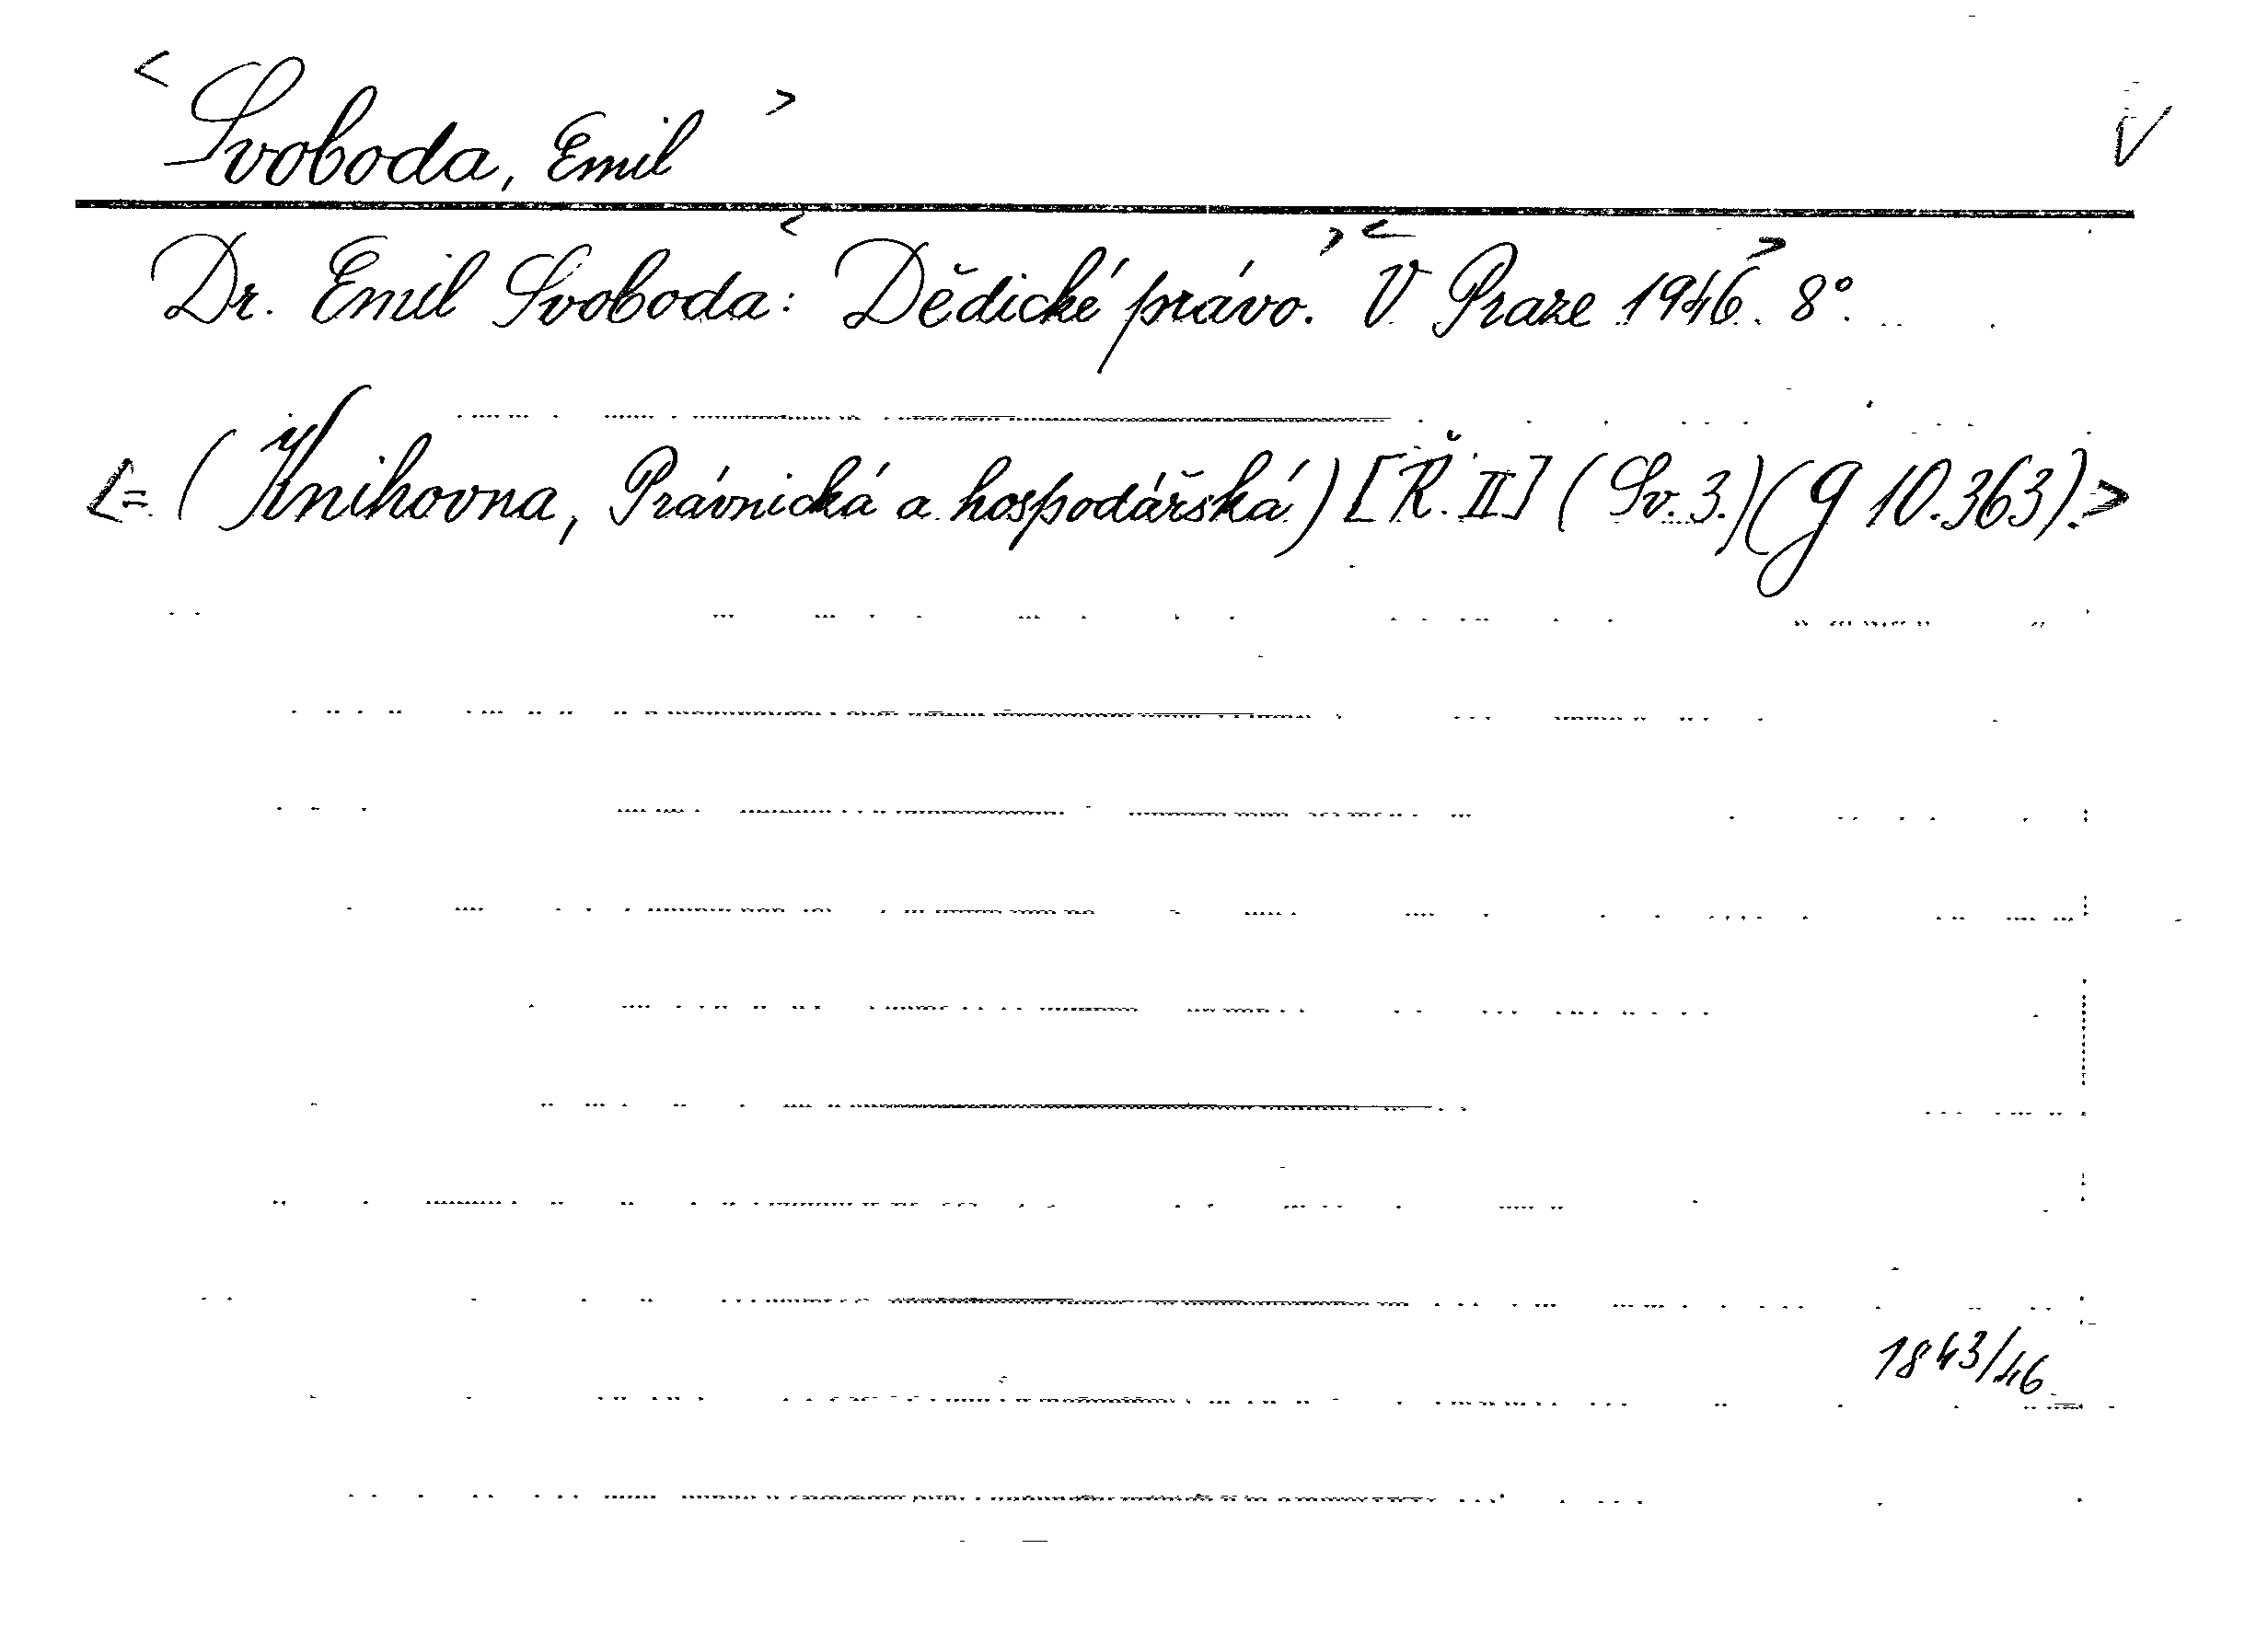 < Svoboda, Emil > V
Dr. Emil Svoboda: < Dědické právo. > < V Praze 1946. > 8°.
<= (Knihovna, Právnická a hospodářská) [Ř. II] (Sv. 3.) (g 10.363). >
1843/46